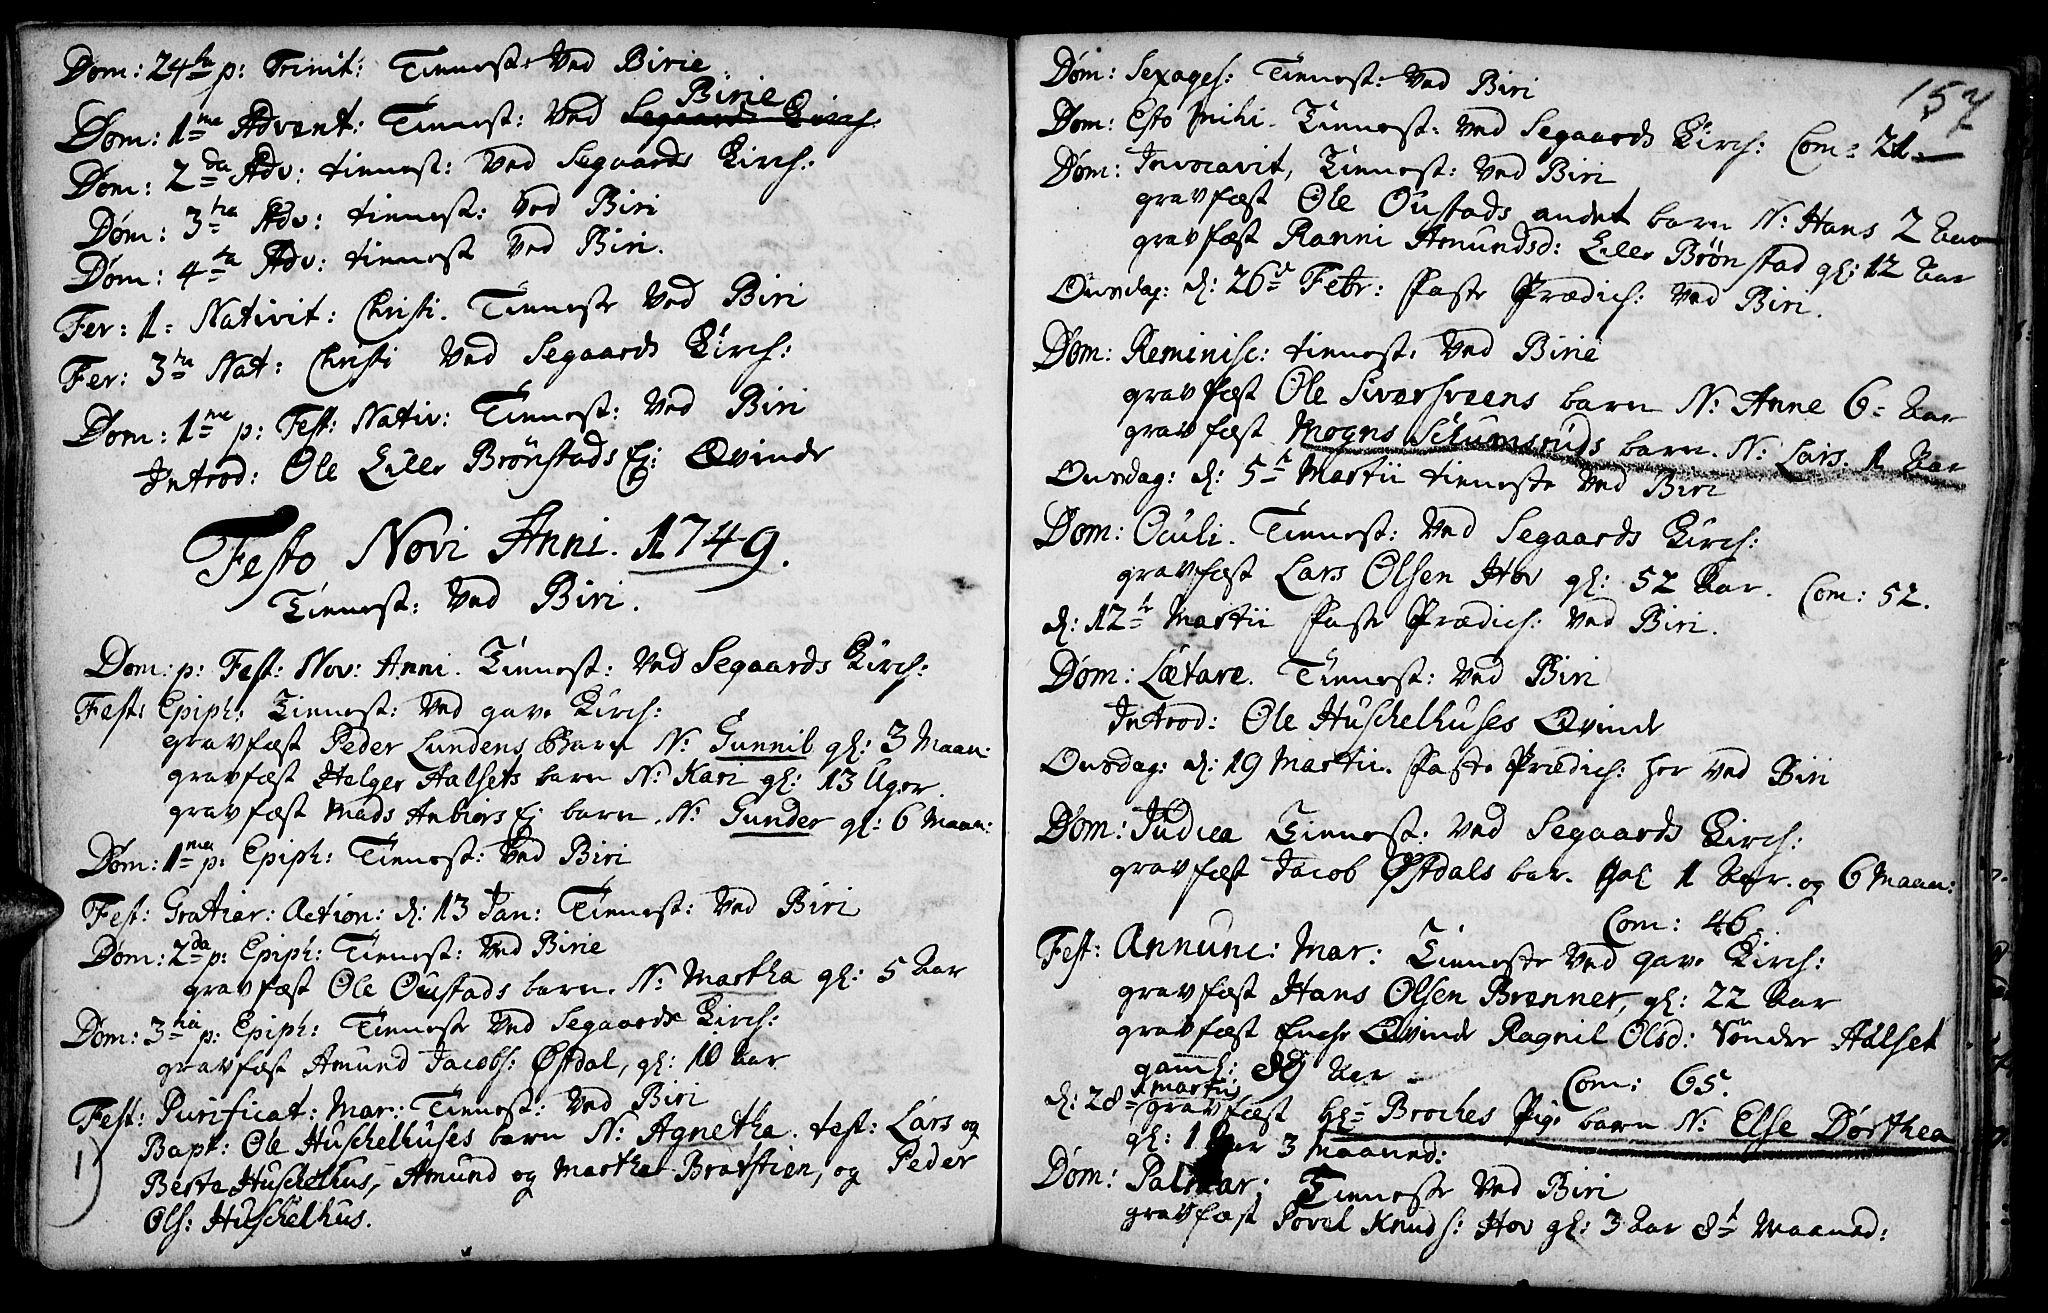 Dom: 24de p: Trinit: Tiennest: Ved Birie
Dom: 1ma Advent: Tiennest: Ved Segaards Kirch: Birie
Dom: 2da Adv: tiennest: Ved Segaards Kirch:
Dom: 3tia Adv: tiennest: Ved Biri
Dom: 4ta Adv: tiennest Ved Biri.
Fer: 1. Nativit: Christi. Tienneste Ved Biri
Fer: 3tia Nat: Christi Ved Segaards Kirch:
Dom: 1ma p: Fest: Nativ: Tiennest: Ved Biri
Introd: Ole Lille Brønstads Qvinde
Festo Novi Anni. 1749.
Tiennest: Ved Biri.
Dom: p: Fest: Nov: Anni. Tiennest: Ved Segaards Kirch:
Fest: Epiph: Tiennest: Ved hov. Kirch:
gravfæst Peder Lundens Barn N: Gunnil gl: 3 Maan:
gravfæst Helger Aalsets barn N: Kari gl: 13 Uger.
gravfæst Mads barn. N: Gunder gl: 6 Maan:
Dom: 1ma p: Epiph: Tiennest: Ved Biri
Fest: Gratiar: Action: d: 13 Jan: Tiennest: Ved Biri
Dom: 2da p: Epiph: Tiennest: Ved Birie
gravfæst Ole Oustads barn. N: Martha gl: 5 Aar
Dom: 3tia p: Epiph: Tienneste Ved Segaards Kirch:
gravfæst Amund Jacobs: Østdal, gl: 10 Aar
Fest: Purificat: Mar: Tiennest: Ved Biri
1) Bapt: Ole Huschelhuses barn N: Agnetha. test: Lars og
Berte Huschelhus, Amund og Martha Bravstien, og Peder
Ols: Huschelhus.
157
Dom: Sexages: Tiennest: Ved Biri
Dom: Esto mihi. Tiennest: Ved Segaards Kirch: Com: 21.
Dom: Invocavit, Tiennest: Ved Biri
gravfæst Ole Oustads andet barn N: Hans 2 Aar
gravfæst Ranni Amundsd: Lille Brønstad gl: 12 Aar
Onsdag: d: 26de Febr: Faste Prædich: Ved Biri.
Dom: Reminisc: tiennest: Ved Birie
gravfæst Ole barn N: Anne 6 Aar
gravfæst Mogns Schumsruds barn. N: Lars. 1 Aar
Onsdag: d: 5te Martii tienneste Ved Biri
Dom: Oculi. Tiennest: Ved Segaards Kirch:
gravfæst Lars Olsen Hov gl: 52 Aar. Com: 52.
d: 12te Martii Faste Prædich: Ved Biri.
Dom: Lætare. Tiennest: Ved Biri
Introd: Ole Huschelhuses Qvinde
Onsdag: d: 19 Martii. Faste Prædich: her Ved Biri
Dom: Judica Tiennest: Ved Segaards Kirch:
gravfæst Jacob Østdals bar. gl 1 Aar. og 6 Maan:
Com: 46.
Fest: Annunc: Mar: Tienneste Ved hov. Kirch:
gravfæst Hans Olsen Brenner, gl: 22 Aar
gravfæst Enche Qvinde Ragnil Olsd: Sønder Aalset
gaml: 89 Aar Com: 65.
d: 28 Martii gravfæst Hr Broches Pig. barn N: Else Dorthea
gl: 1 Aar 3 Maaned:
Dom: Palmar; Tienneste Ved Biri
gravfæst Povel Knuds: Hov gl: 3 Aar 8 Maaned: